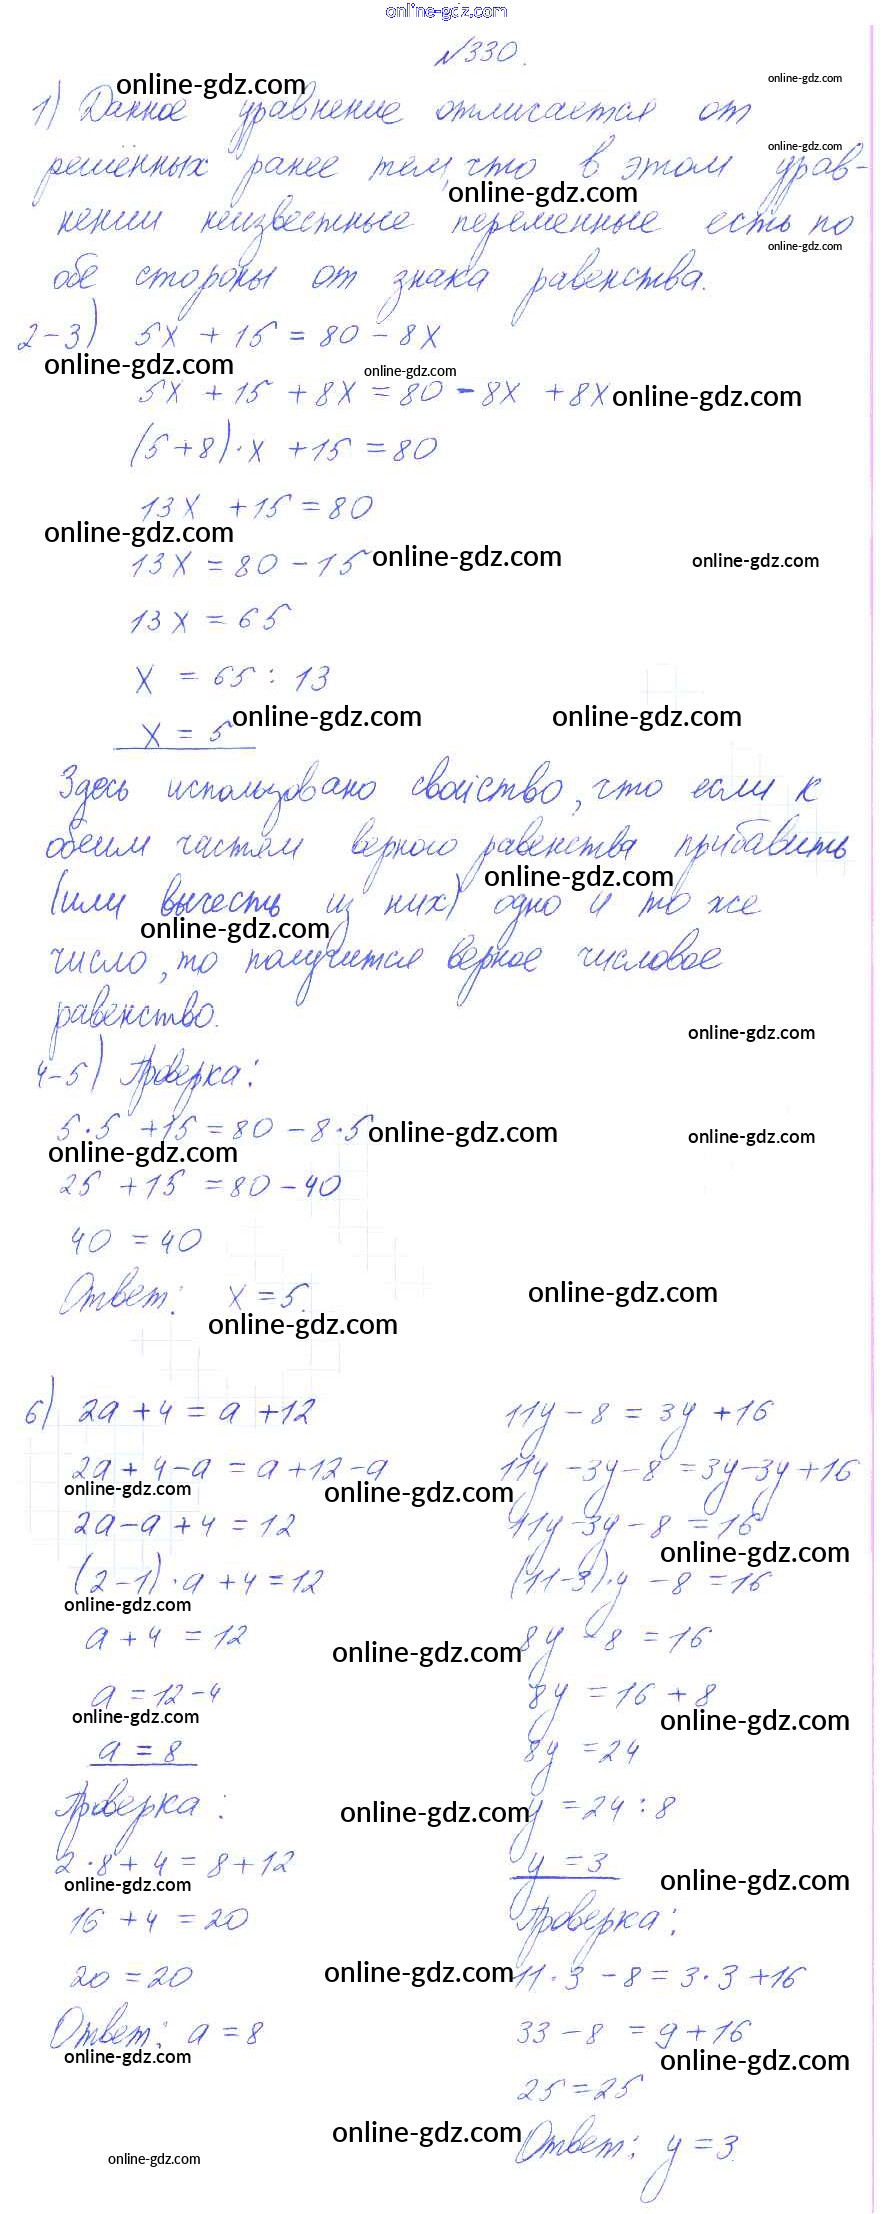 online-gdz.com
№330.
online-gdz.com
online-gdz.com
1) Данное уравнение отличается от
решённых ранее тем, что в этом урав-
online-gdz.com
online-gdz.com
нении неизвестные переменные есть по
online-gdz.com
обе стороны от знака равенства.
2-3) 5x + 15 = 80 - 8x
online-gdz.com
online-gdz.com
5x + 15 + 8x = 80 - 8x + 8x
online-gdz.com
(5+8)·x + 15 = 80
13x + 15 = 80
online-gdz.com
online-gdz.com
online-gdz.com
13x = 80 - 15
13x = 65
x = 65 : 13
online-gdz.com
online-gdz.com
x = 5
Здесь использовано свойство, что если к
обеим частям верного равенства прибавить
online-gdz.com
(или вычесть из них) одно и то же
online-gdz.com
число, то получится верное числовое
равенство.
online-gdz.com
4-5) Проверка:
5·5 + 15 = 80 - 8·5
online-gdz.com
online-gdz.com
online-gdz.com
25 + 15 = 80 - 40
40 = 40
Ответ: x = 5.
online-gdz.com
online-gdz.com
6) 2a + 4 = a + 12
2a + 4 - a = a + 12 - a
online-gdz.com
online-gdz.com
2a - a + 4 = 12
(2-1)·a + 4 = 12
online-gdz.com
a + 4 = 12
a = 12 - 4
online-gdz.com
a = 8
Проверка:
2·8 + 4 = 8 + 12
online-gdz.com
16 + 4 = 20
20 = 20
Ответ: a = 8
online-gdz.com
online-gdz.com
11y - 8 = 3y + 16
11y - 3y - 8 = 3y - 3y + 16
11y - 3y - 8 = 16
online-gdz.com
(11-3)·y - 8 = 16
online-gdz.com
8y - 8 = 16
8y = 16 + 8
online-gdz.com
8y = 24
online-gdz.com
y = 24 : 8
y = 3
online-gdz.com
Проверка:
online-gdz.com
11·3 - 8 = 3·3 + 16
33 - 8 = 9 + 16
online-gdz.com
25 = 25
online-gdz.com
Ответ: y = 3.